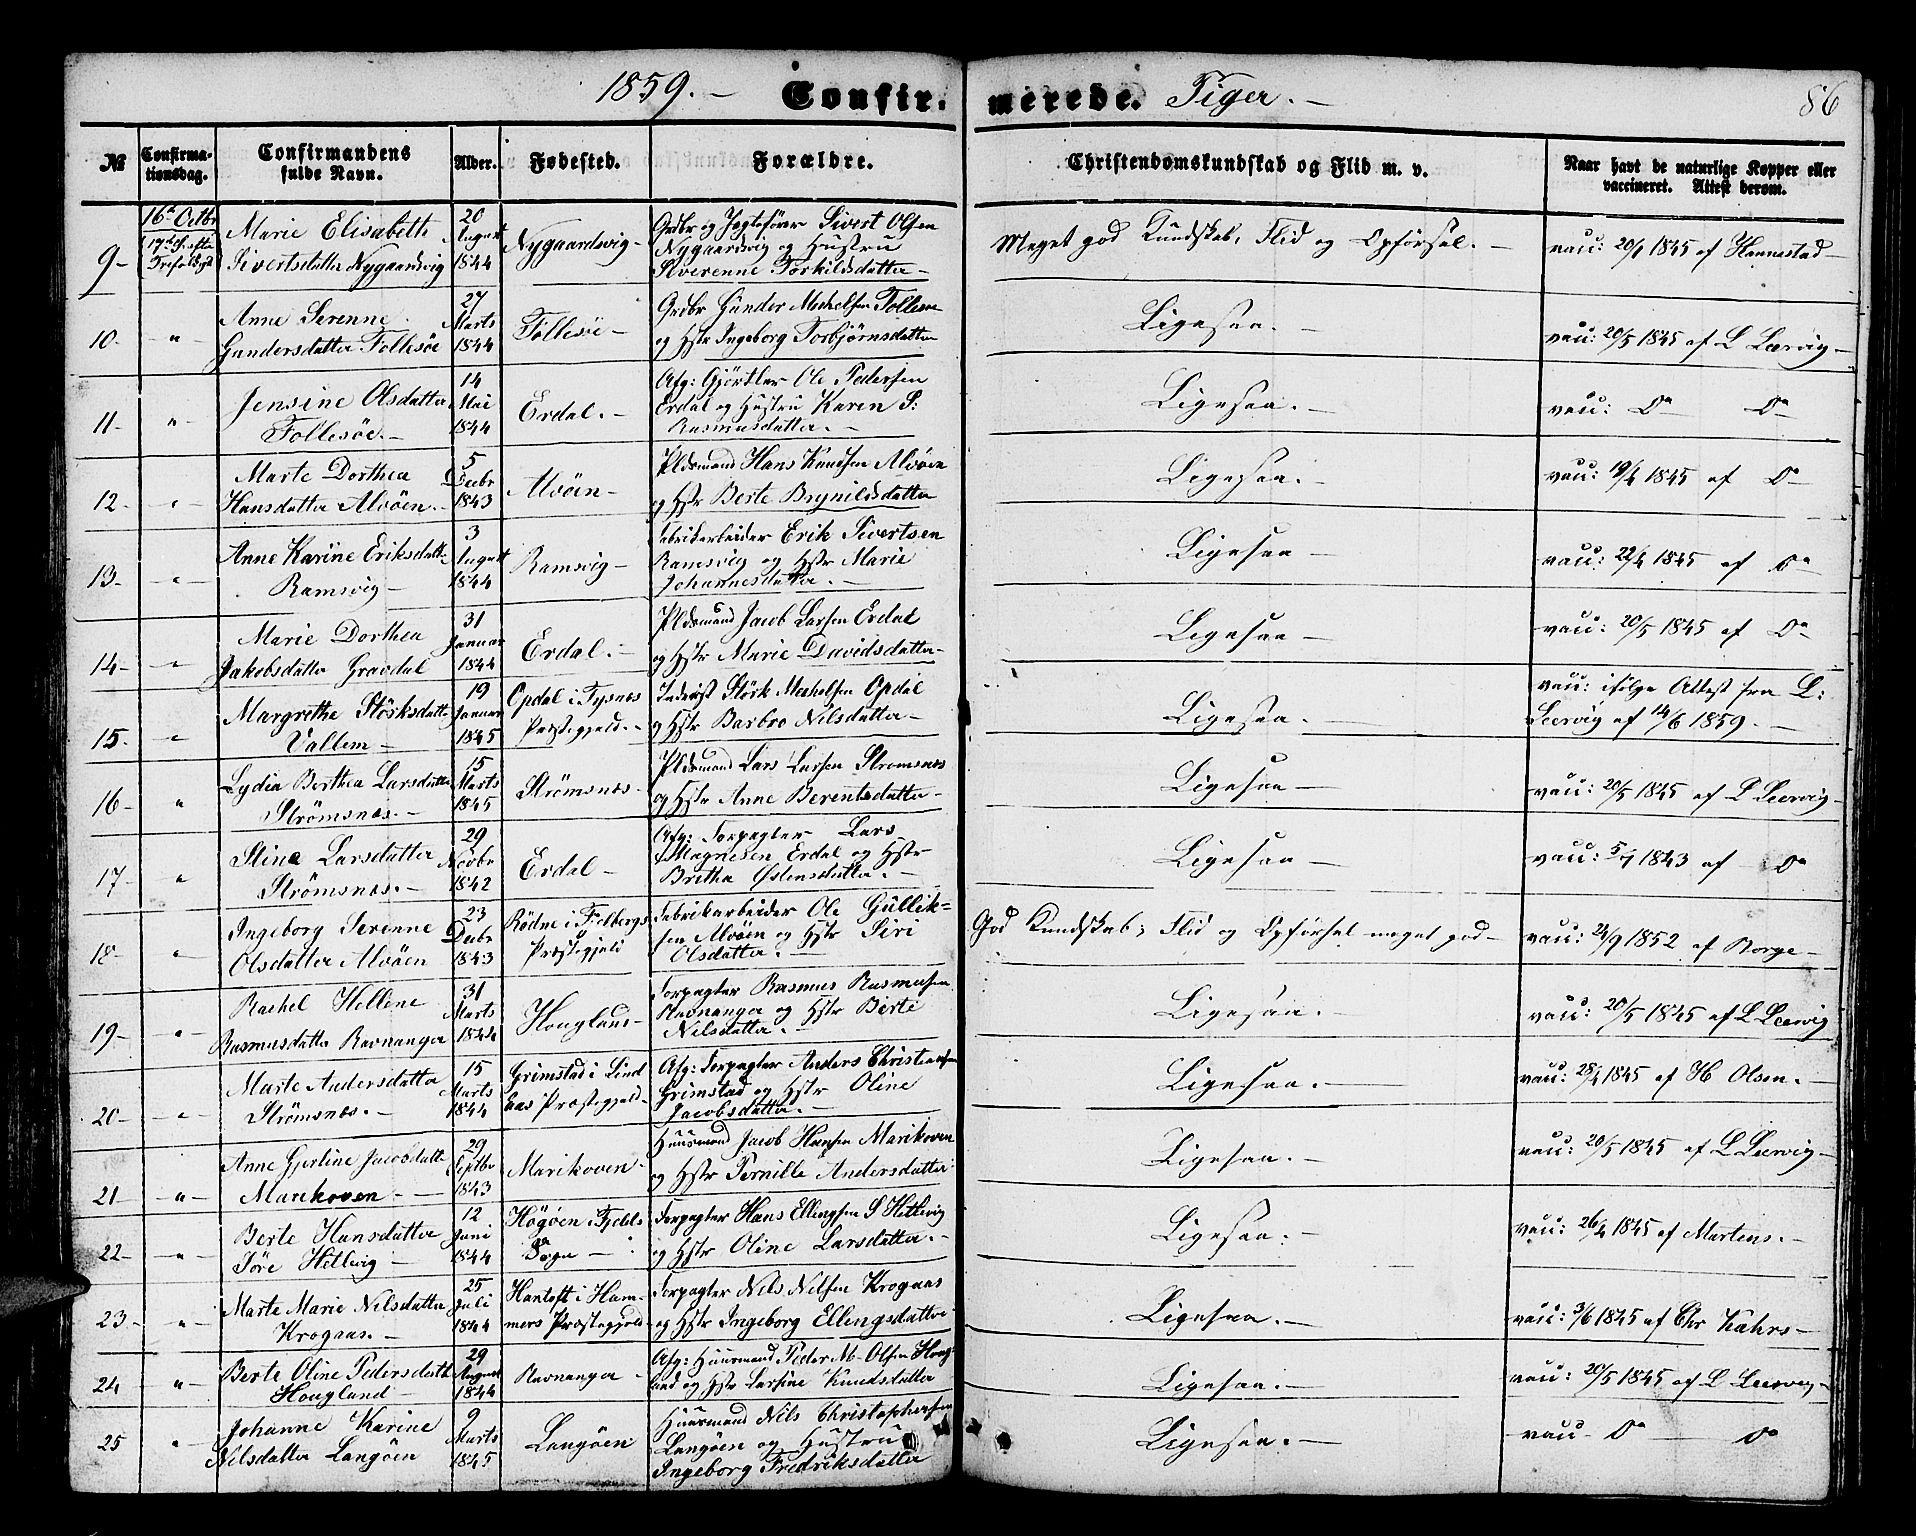 1859. - Confir-
merede. Piger. -
86
№
Confirma-
tionsdag.
Confirmandens
fulde Navn.
Alder.
Fødested.
Forældre.
Christendomskundskab og Flid m. v.
Naar havt de naturlige Kopper eller
vaccineret. Attest derom.
9 -
16de Octbr
17de S. efter
Trefoldighd
Marie Elisabeth
Sivertsdatter Nygaardsvig
20
August
1844
Nygaardsvig -
Grdbr og Jagtefører Sivert Olsen
Nygaardsvig og Hustru
Siverenne Torkildsdatter -
Meget god Kundskab, Flid og Opførsel. -
vac: 20/9 1845 af Hannestad -
10 -
"
Anne Serenne
Gundersdatter Follesøe
27
Marts
1844
Follesøe -
Grdbr Gunder Mikkelsen Follesøe
og Hstr Ingeborg Torbjørnsdatter
Ligesaa. -
vac: 20/5 1845 af L Leervig -
11 -
"
Jensine Olsdatter
Follesøe. -
14
Mai
1844
Erdal. -
Afg: Gjørtler Ole Pedersen
Erdal og Hustru Karen S:
Rasmusdatter. -
Ligesaa. -
vac: Do Do
12 -
"
Marte Dorthea
Hansdatter Alvøen. -
5
Decbr
1843
Alvøen -
Pldsmand Hans Knudsen Alvøen
og Hstr Berte Brynildsdatter
Ligesaa. -
vac: 19/4 1845 af Do
13 -
"
Anne Karine Eriksdatter
Ramsvig -
3
August
1844
Ramsvig -
Fabrikarbeider Erik Sivertsen
Ramsvig og Hstr Marie
Johannesdatter. -
Ligesaa -
vac: 22/4 1845 af Do
14 -
"
Marie Dorthea
Jakobsdatter Gravdal
31
Januar
1844
Erdal. -
Pldsmand Jacob Larsen Erdal
og Hstr Marie Davidsdatter -
Ligesaa -
vac: 20/5 1845 af Do
15 -
"
Margrethe Størksdatter
Vallem -
19
Januar
1845
Opdal i Tysnes
Præstegjeld. -
Inderst Størk Mikkelsen Opdal
og Hstr Barbro Nilsdatter -
Ligesaa. -
vac: ifølge Attest fra L:
Leervig af 14/6 1859. -
16 -
"
Lydia Berthea Larsdatter
Strømsnes. -
15
Marts
1845
Strømsnes -
Pldsmand Lars Larsen Strømsnes
og Hstr Anne Berentsdatter -
Ligesaa -
vac: 20/5 1845 af L Leervig -
17 -
"
Stine Larsdatter
Strømsnes. -
29
Novbr
1842
Erdal -
Afg: Forpagter Lars
Magnesen Erdal og Hstr
Britha Østensdatter. -
Ligesaa -
vac: 5/7 1843 af Do
18 -
"
Ingeborg Serenne
Olsdatter Alvøen
23
Decbr
1843
Rødne i Fjelbergs
Præstegjeld
Fabrikarbeider Ole Gullik-
sen Alvøen og Hstr Siri
Olsdatter. -
God Kundskab; Flid og Opførsel meget god -
vac: 24/9 1852 af Borge -
19 -
"
Rachel Hellene
Rasmusdatter Ravnanger
31
Marts
1844
Houglan -
Forpagter Rasmus Rasmusen
Ravnanger og Hstr Berte
Nilsdatter. -
Ligesaa. -
vac: 20/5 1845 af L Leervig
20 -
"
Marte Andersdatter
Strømsnes. -
15
Marts
1844
Grimstad i Lind
aas Præstegjeld -
Afg: Forpagter Anders Christensen
Grimstad og Hstr Oline
Jacobsdatter. -
Ligesaa. -
vac: 28/4 1845 af H Olsen. -
21 -
"
Anne Gjertine Jacobsdatter
Marikoven -
29
Septbr
1843
Marikoven -
Huusmand Jacob Hansen Marikoven
og Hstr Pernille Andersdatter
Ligesaa. -
vac: 20/5 1845 af L Leervig -
22 -
"
Berte Hansdatter
Søre Hetlevig -
12
Juni
1844
Høgøen i Fjelds
Sogn -
Forpagter Hans Ellingsen S Hetlevig
og Hstr Oline Larsdatter. -
Ligesaa. -
vac: 26/4 1845 af Martens. -
23 -
"
Marte Marie Nilsdatter
Krogaas. -
25
Juli
1844
Hantoft i Ham-
mers Præstegjeld -
Forpagter Nils Nilsen Krogaas
og Hstr Ingeborg Ellingsdatter
Ligesaa. -
vac: 3/6 1845 af Chr Kahrs -
24 -
"
Berte Oline Pedersdatter
Hougland -
29
August
1844
Ravnanger -
Afg: Huusmand Peder M. Olsen Houg
land og Hstr Larsine Knudsdatter
Ligesaa. -
vac: 20/5 1845 af L Leervig -
25
"
Johanne Karine
Nilsdatter Langøen
9
Marts
1845
Langøen
Huusmand Nils Christophersen
Langøen og Hustru
Ingeborg Fredriksdatter
Ligesaa. -
vac - Do - Do